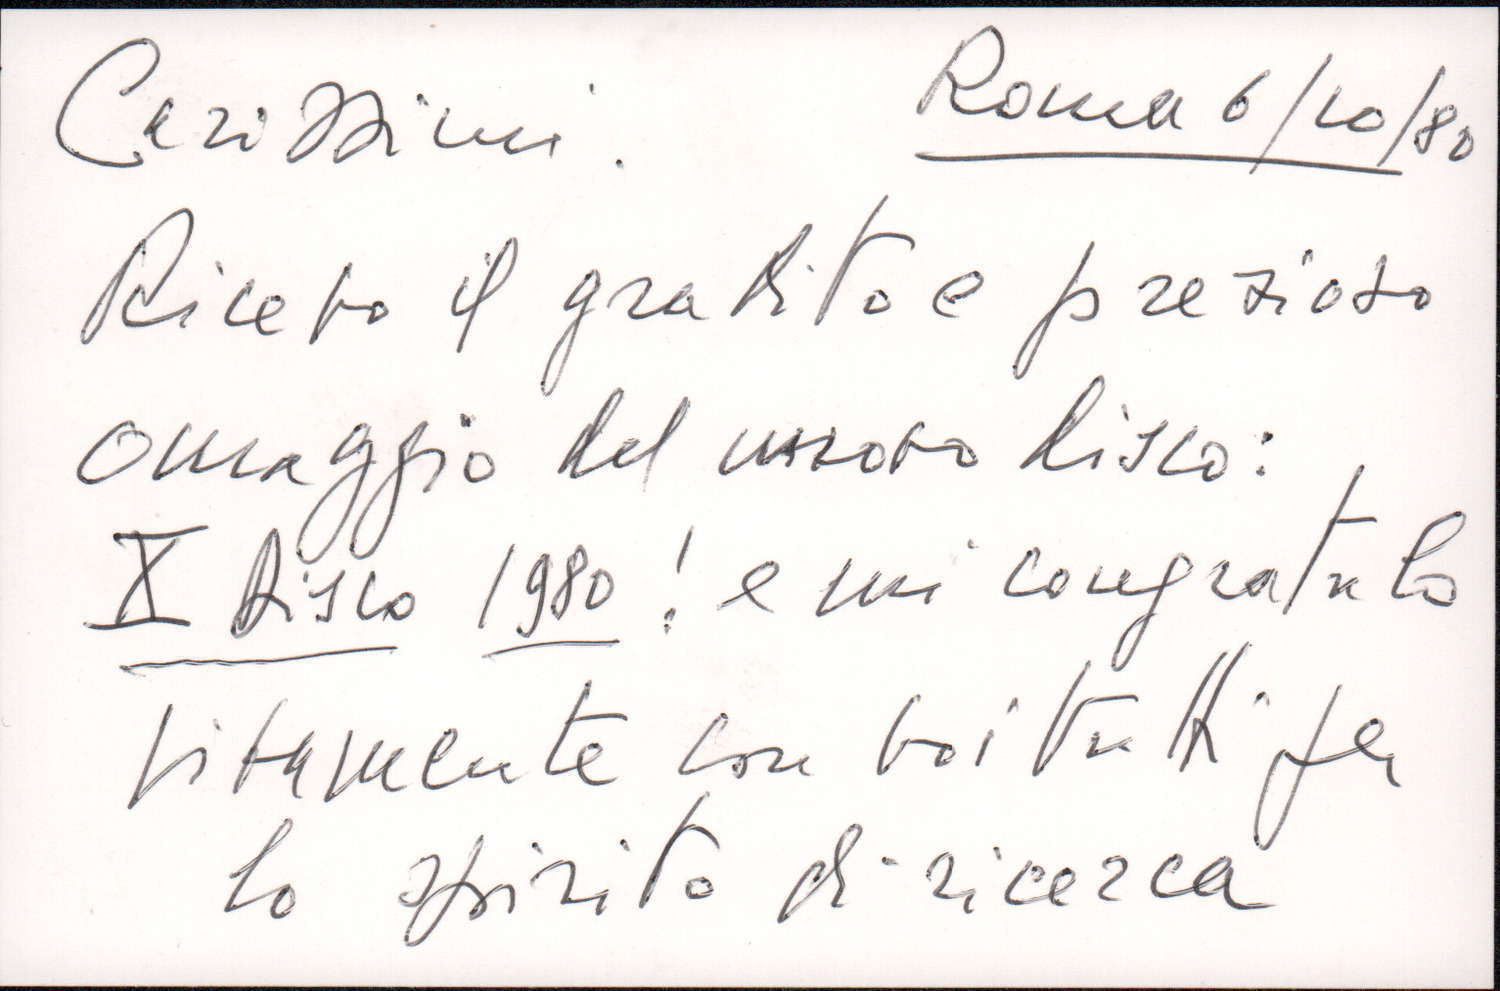 Carissimi.
Roma 6/10/80
Ricevo il gradito e prezioso
omaggio del nuovo disco:
X disco 1980! e mi congratulo
vivamente con voi tutti per
lo spirito di ricerca